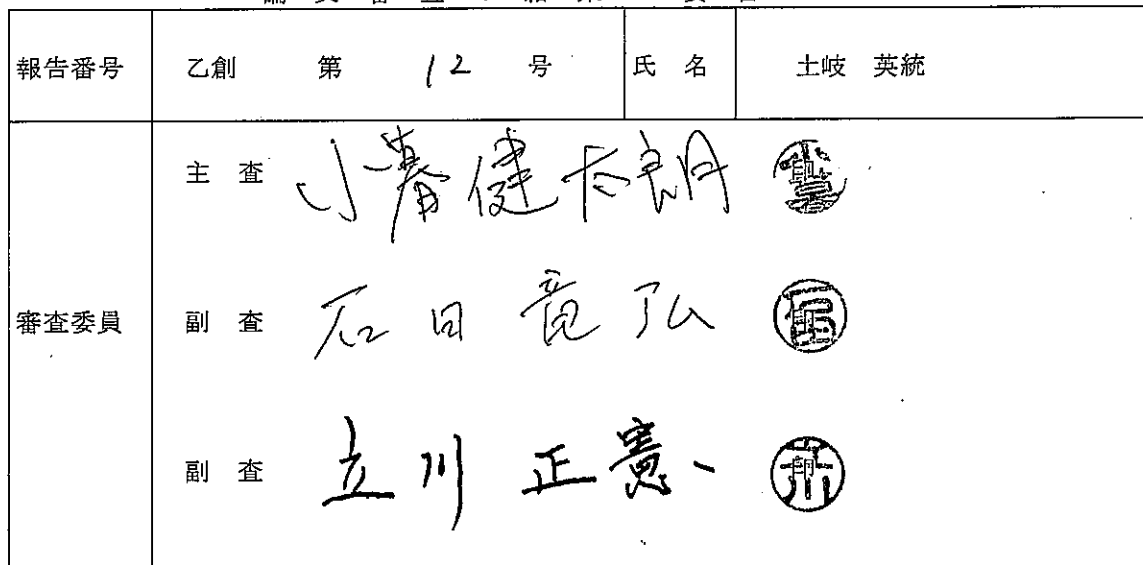 報告番号 乙創 第 12 号 氏名 土岐 英統
審査委員
主査 小暮健太朗
副査 石田竜弘
副査 立川正憲